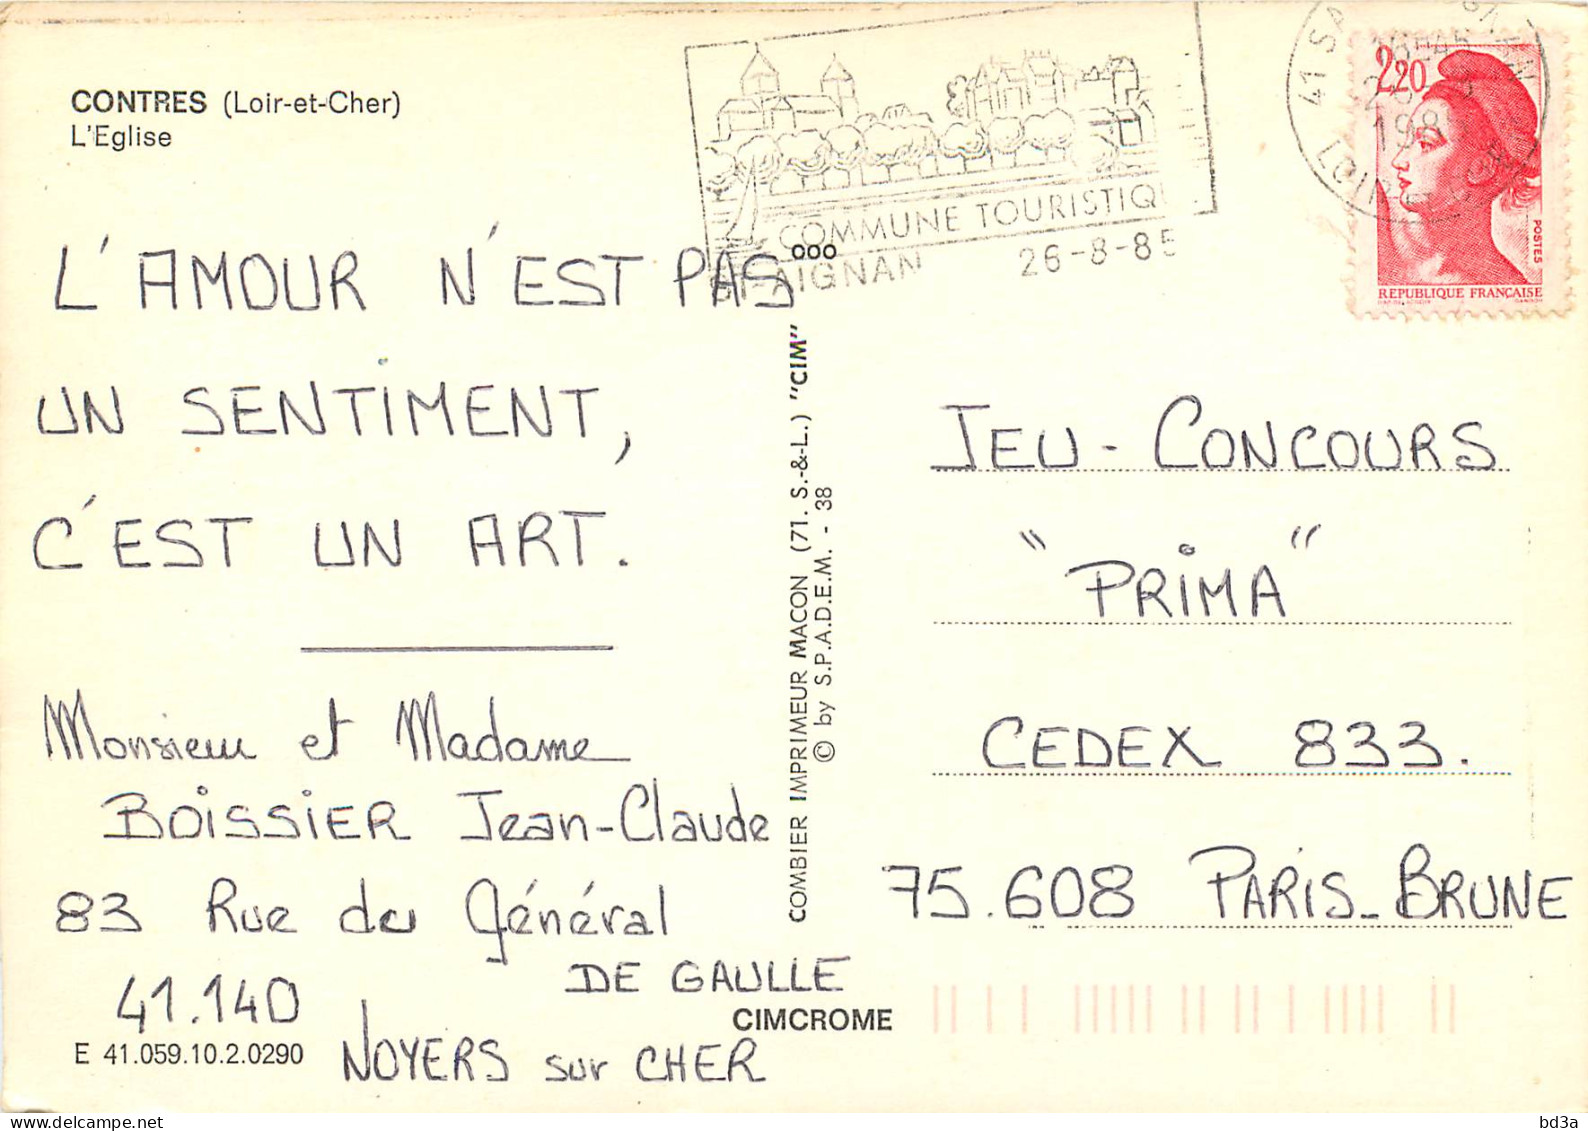 CONTRES (Loir-et-Cher)
L'Eglise
COMMUNE TOURISTIQ
ST-AIGNAN 26-8-85
41 SA
16H45
198
LOIR
2,20
POSTES
REPUBLIQUE FRANÇAISE
L'AMOUR N'EST PAS
UN SENTIMENT,
C'EST UN ART.
Monsieur et Madame
BOISSIER Jean-Claude
83 Rue du Général
DE GAULLE
41.140
NOYERS sur CHER
E 41.059.10.2.0290
CIMCROME
COMBIER IMPRIMEUR MACON (71. S.-&-L.) "CIM"
© by S.P.A.D.E.M. - 38
JEU - CONCOURS
"PRIMA"
CEDEX 833.
75.608 PARIS-BRUNE
bd3a